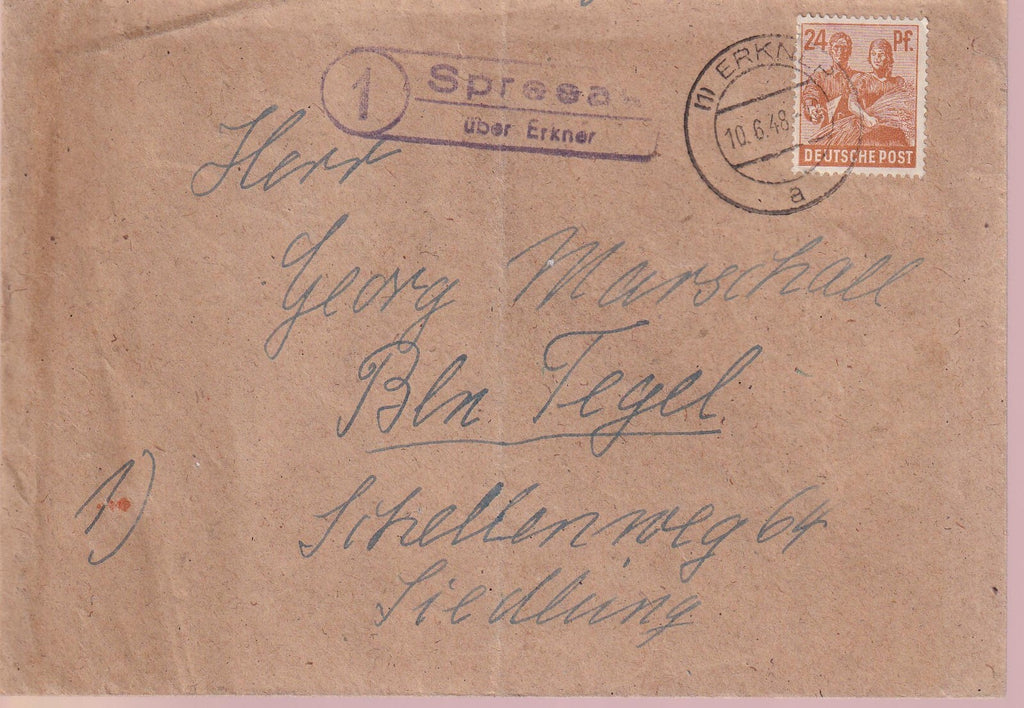 1
Spreea
über Erkner
(1) ERKN
10.6.48
a
24 Pf.
DEUTSCHE POST
Herr
Georg Marschall
Bln. Tegel.
1)
Schellenweg 64
Siedlung